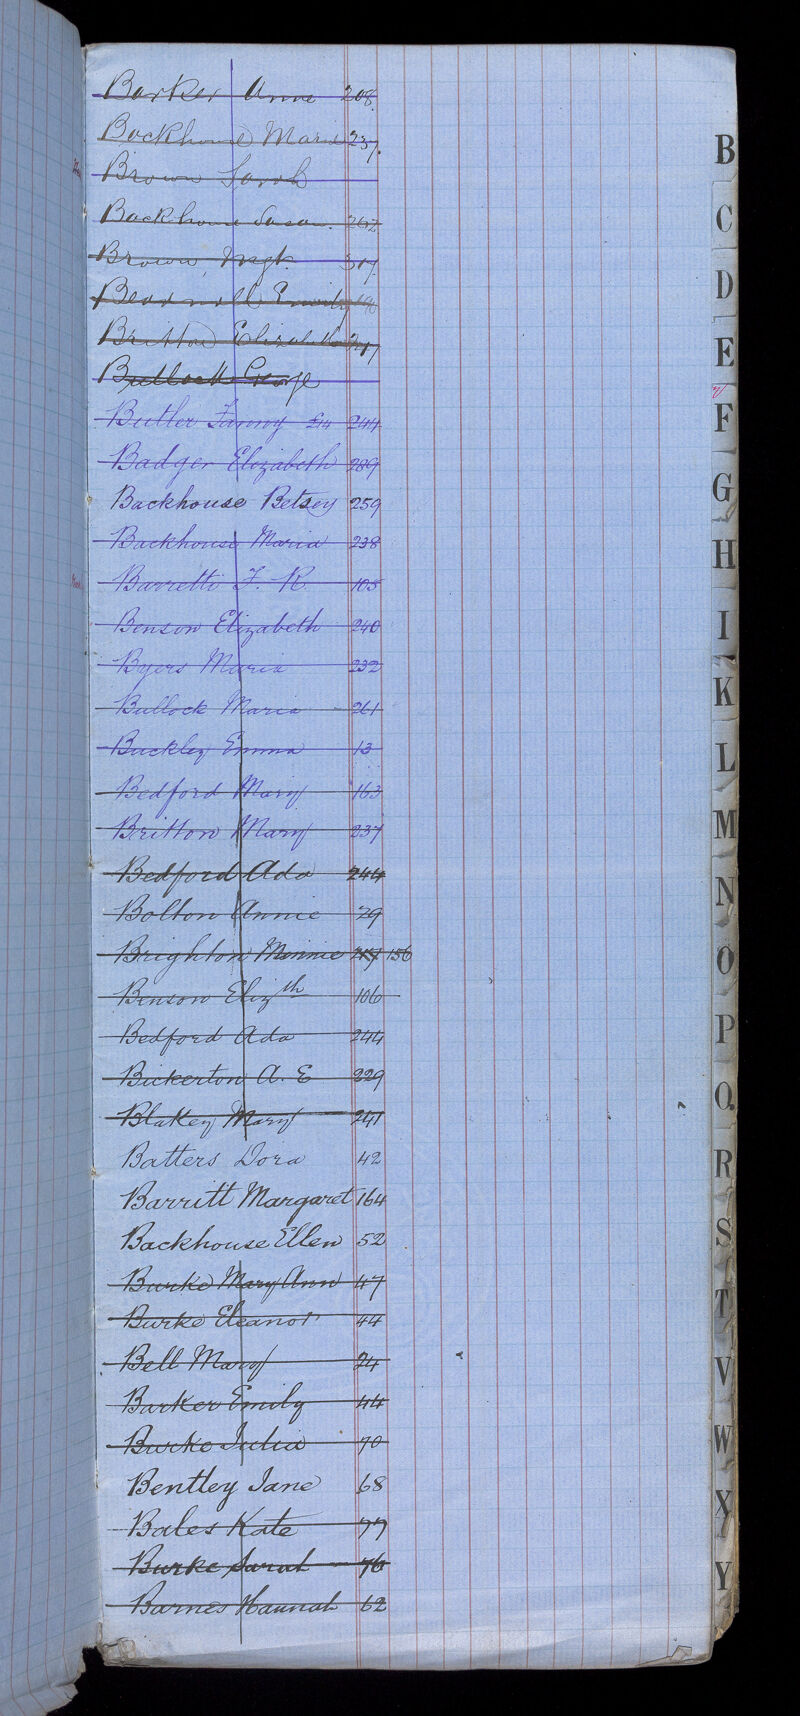 Barker Anne 208
Backhouse Maria 237.
Brown Sarah
Backhouse Susan. 262
Brown Mgt. 317
Beadnell Emily
Britton Elizabeth 247
Bullock George
Butler Fanny £14 244
Badger Elizabeth 289
Backhouse Betsey 259
Backhouse Maria 238
Barretti F. R. 105
Benson Elizabeth 240
Byers Maria 232
Bullock Maria 261
Buckley Emma 13
Bedford Mary 163
Britton Mary 237
Bedford Ada 244
Bolton Annie 29
Brighton Minnie 217 156
Benson Elizth 106
Bedford Ada 244
Bickerton A. E 229
Blakey Mary 241
Batters Dora 42
Barritt Margaret 164
Backhouse Ellen 52
Burke Mary Ann 47
Burke Eleanor 44
Bell Mary 24
Barker Emily 44
Burke Julia 70
Bentley Jane 68
Bales Kate 77
Burke Sarah 76
Barnes Hannah 62
B
C
D
E
F
G
H
I
K
L
M
N
O
P
Q.
R
S
T
V
W
X
Y